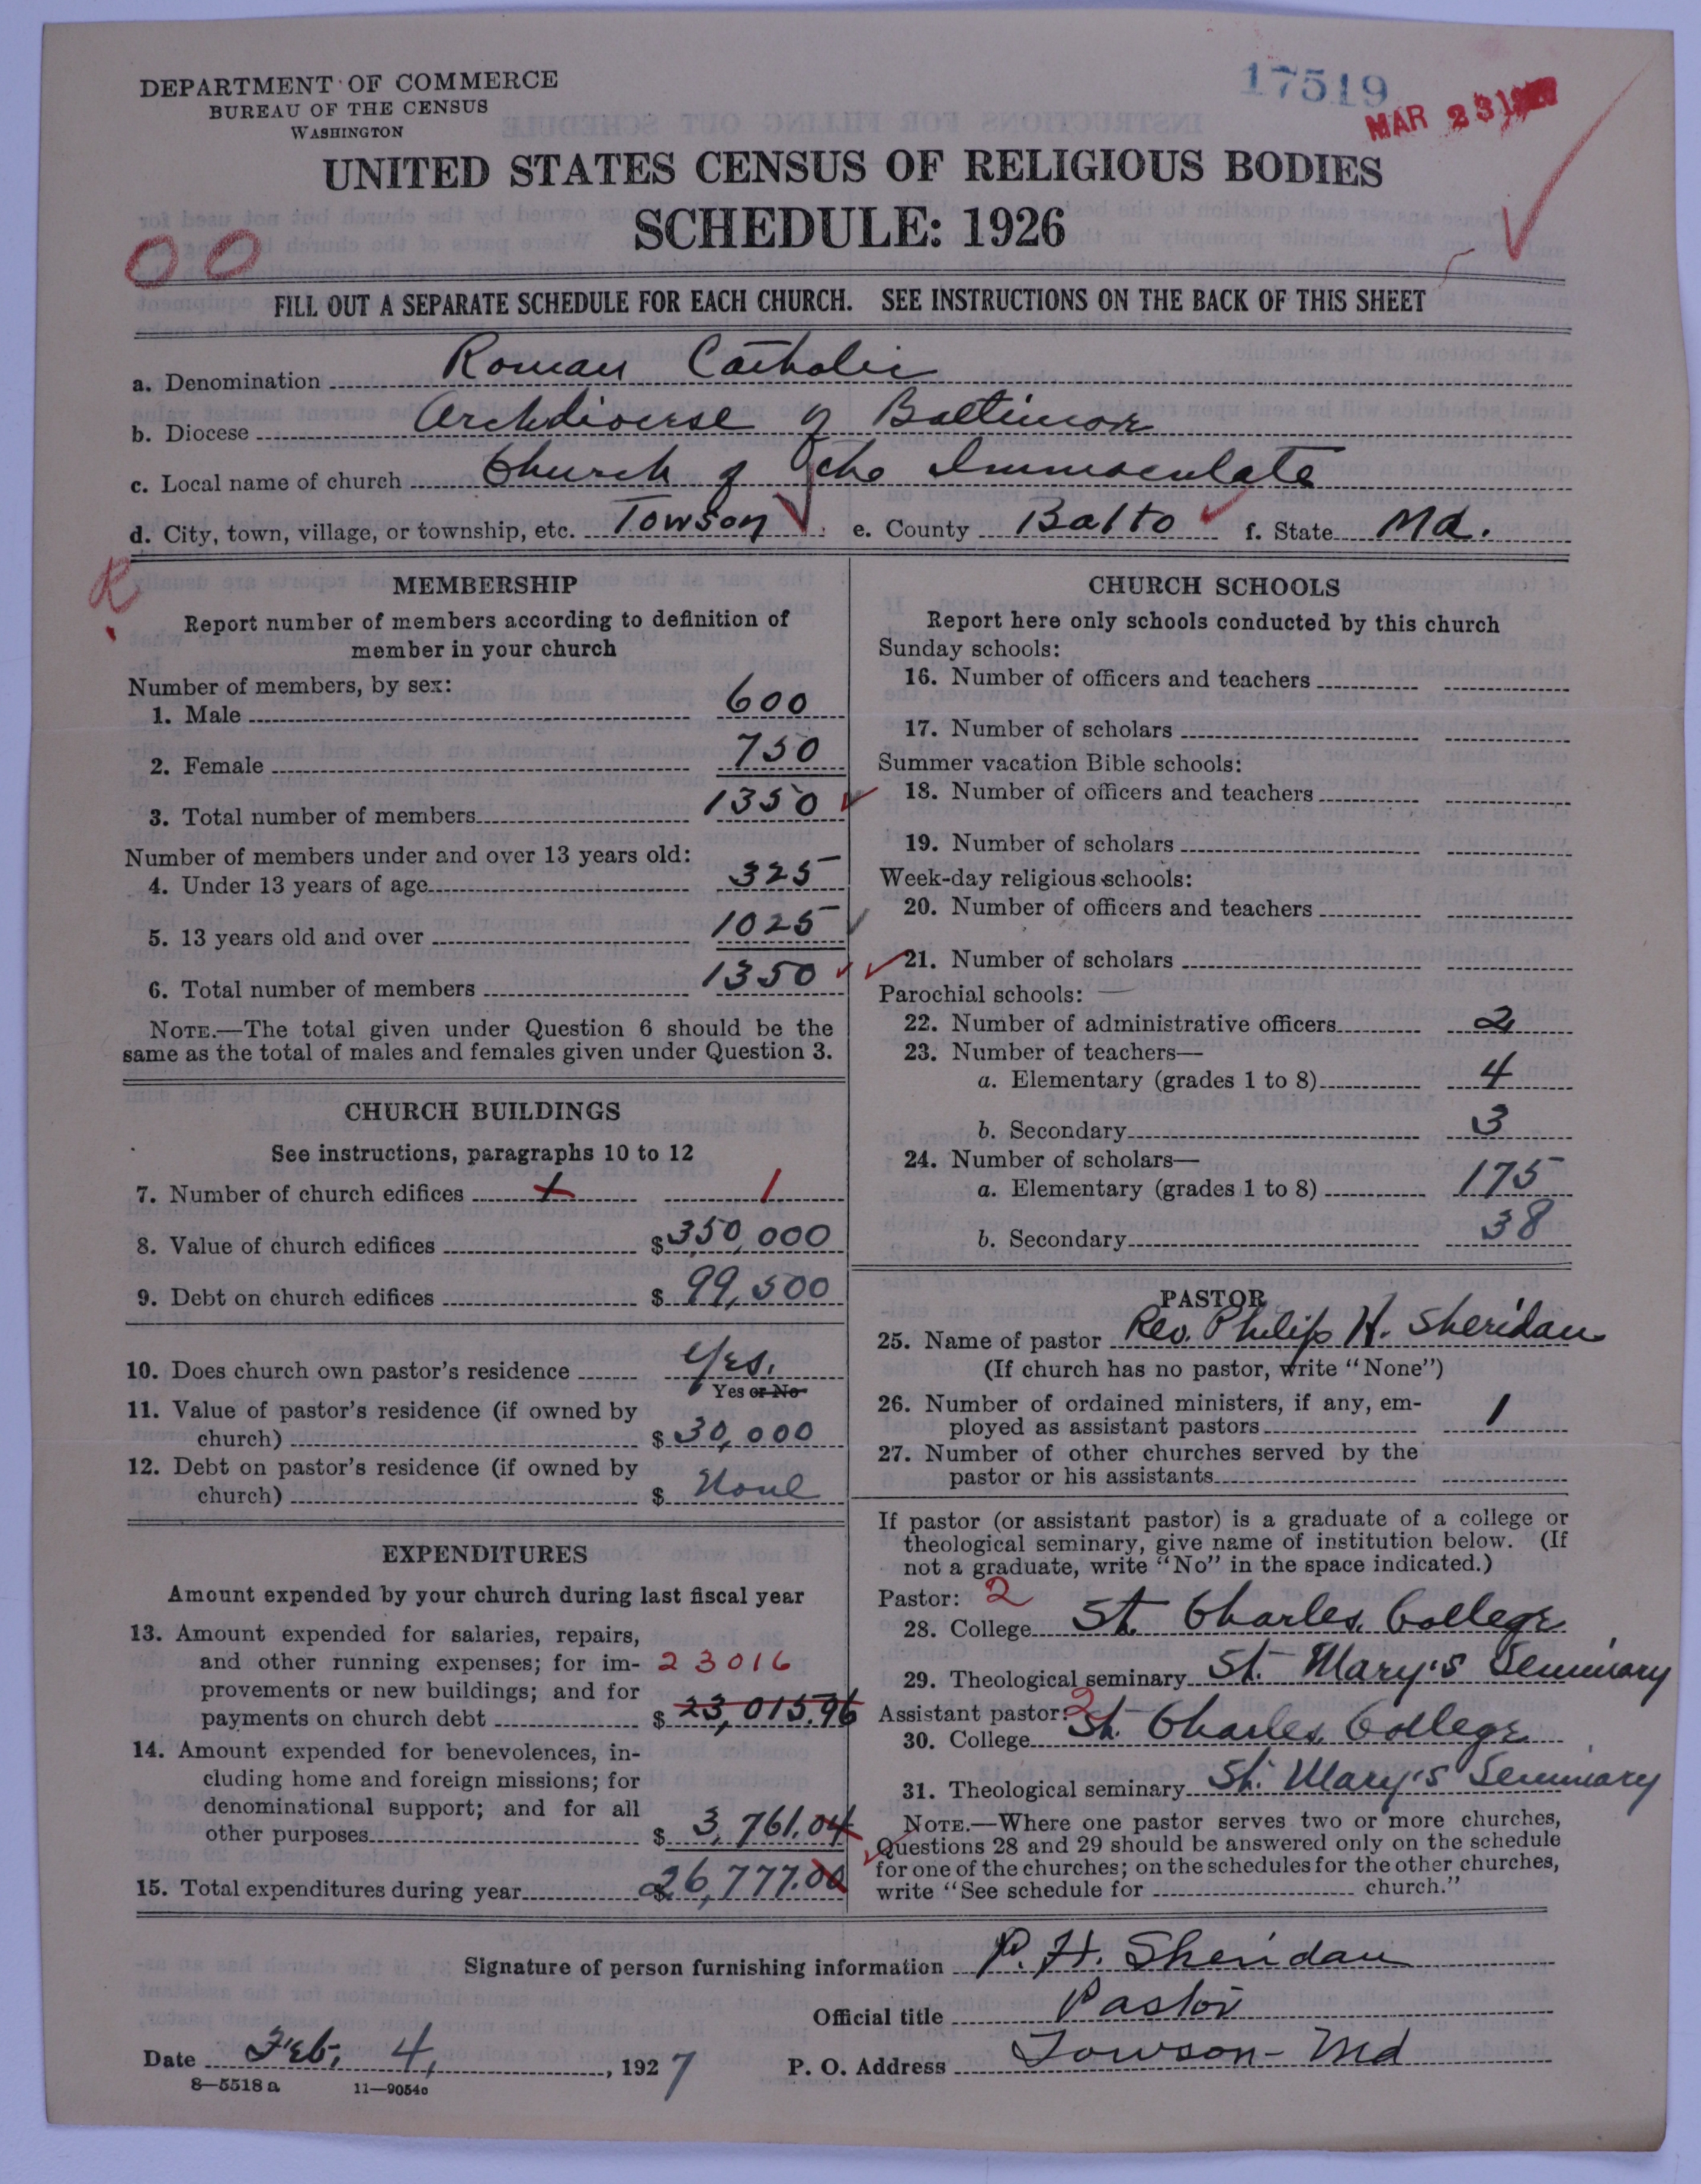 DEPARTMENT OF COMMERCE
BUREAU OF THE CENSUS
WASHINGTON
17519
MAR 23
UNITED STATES CENSUS OF RELIGIOUS BODIES
SCHEDULE: 1926
00
FILL OUT A SEPARATE SCHEDULE FOR EACH CHURCH. SEE INSTRUCTIONS ON THE BACK OF THIS SHEET
a. Denomination Roman Catholic
b. Diocese Archdiocese of Baltimore
c. Local name of church Church of the Immaculate
d. City, town, village, or township, etc. Towson e. County Balto f. State Md.
R
MEMBERSHIP
Report number of members according to definition of
member in your church
Number of members, by sex:
1. Male 600
2. Female 750
3. Total number of members 1350
Number of members under and over 13 years old:
4. Under 13 years of age 325
5. 13 years old and over 1025
6. Total number of members 1350
NOTE.—The total given under Question 6 should be the
same as the total of males and females given under Question 3.
CHURCH BUILDINGS
See instructions, paragraphs 10 to 12
7. Number of church edifices 1
8. Value of church edifices $350,000
9. Debt on church edifices $99,500
10. Does church own pastor's residence Yes.
Yes or No
11. Value of pastor's residence (if owned by
church) $30,000
12. Debt on pastor's residence (if owned by
church) $None
EXPENDITURES
Amount expended by your church during last fiscal year
13. Amount expended for salaries, repairs,
and other running expenses; for im- 23016
provements or new buildings; and for
payments on church debt $23,015.96
14. Amount expended for benevolences, in-
cluding home and foreign missions; for
denominational support; and for all
other purposes $3,761.04
15. Total expenditures during year $26,777.00
CHURCH SCHOOLS
Report here only schools conducted by this church
Sunday schools:
16. Number of officers and teachers
17. Number of scholars
Summer vacation Bible schools:
18. Number of officers and teachers
19. Number of scholars
Week-day religious schools:
20. Number of officers and teachers
21. Number of scholars
Parochial schools:
22. Number of administrative officers 2
23. Number of teachers—
a. Elementary (grades 1 to 8) 4
b. Secondary 3
24. Number of scholars—
a. Elementary (grades 1 to 8) 175
b. Secondary 38
PASTOR
25. Name of pastor Rev. Philip H. Sheridan
(If church has no pastor, write "None")
26. Number of ordained ministers, if any, em-
ployed as assistant pastors 1
27. Number of other churches served by the
pastor or his assistants
If pastor (or assistant pastor) is a graduate of a college or
theological seminary, give name of institution below. (If
not a graduate, write "No" in the space indicated.)
Pastor: 2
28. College St. Charles College
29. Theological seminary St. Mary's Seminary
Assistant pastor: 2
30. College St. Charles College
31. Theological seminary St. Mary's Seminary
NOTE.—Where one pastor serves two or more churches,
Questions 28 and 29 should be answered only on the schedule
for one of the churches; on the schedules for the other churches,
write "See schedule for church."
Signature of person furnishing information P. H. Sheridan
Official title Pastor
Date Feb. 4, 1927 P. O. Address Towson - Md
8—5518 a 11—9054c